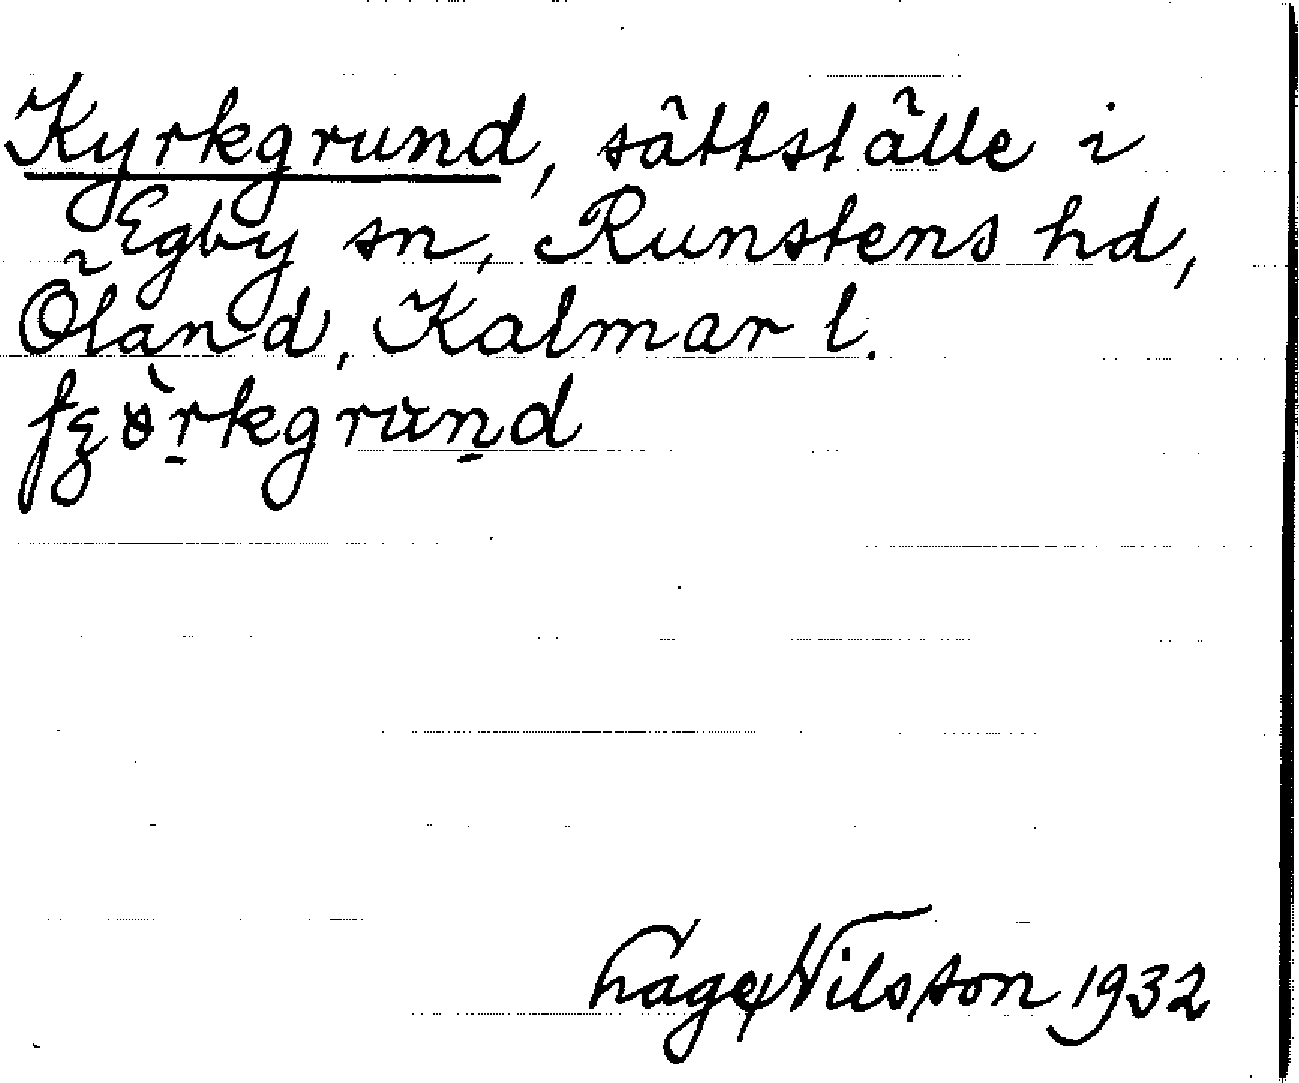 Kyrkgrund, sättställe i
Egby sn, Runstens hd,
Öland, Kalmar l.
Nilsson 1932